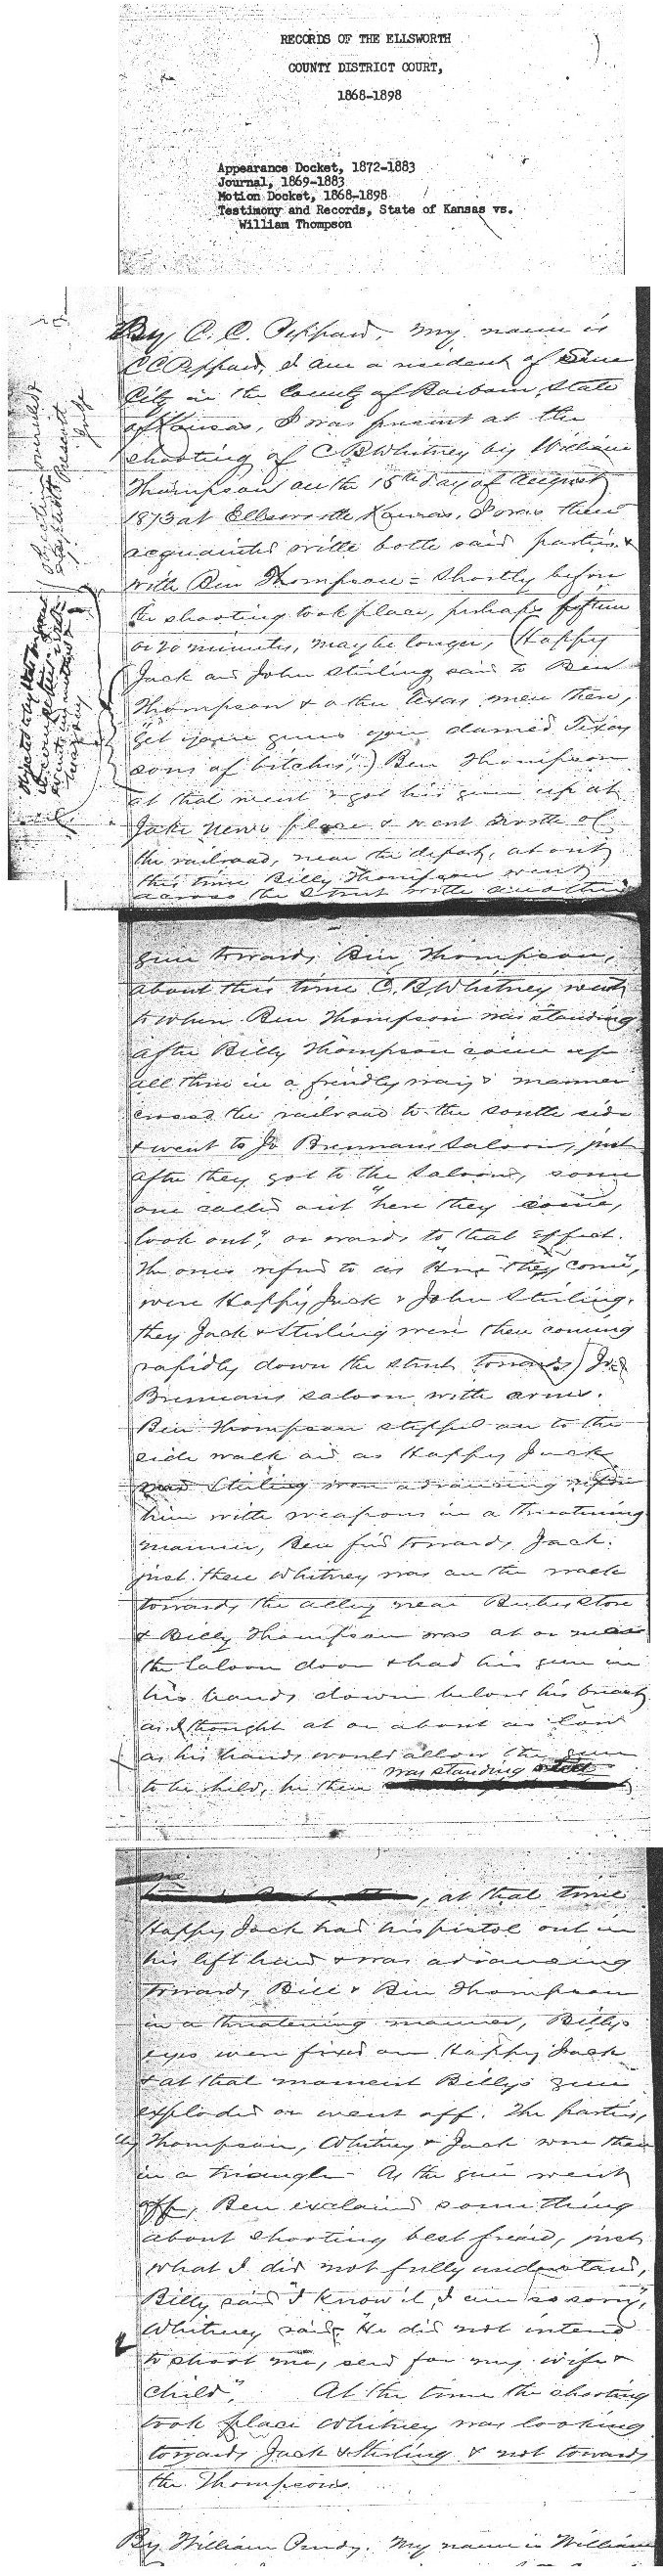 RECORDS OF THE ELLSWORTH
COUNTY DISTRICT COURT,
1868-1898
Appearance Docket, 1872-1883
Journal, 1869-1883
Motion Docket, 1868-1898
Testimony and Records, State of Kansas vs.
William Thompson
By C. C. Peppard. My name is
C C Peppard, I am a resident of
City in the County of Barbour, State
of Kansas, I was present at the
shooting of C B Whitney by William
Thompson on the 15th day of August
1873 at Ellsworth Kansas. I was then
acquainted with both said parties &
with Ben Thompson = Shortly before
the shooting took place, perhaps fifteen
or 20 minutes, may be longer, (Happy
Jack and John Stirling said to Ben
Thompson & other Texas men there,
"Get your guns you damed Texas
sons of bitches",) Ben Thompson
at that went & got his gun up at
Jake New's place & went North of
the railroad, near the depot, about
this time Billy Thompson went
across the Street with another
gun towards Ben Thompson,
about this time C. B. Whitney went
to where Ben Thompson was standing
after Billy Thompson come up
all three in a frindly way & manner
crossed the railroad to the south side
& went to Jo Brennans Saloon, just
after they got to the Saloon, some
one called out "here they come,
look out", or words to that effect.
The ones refred to as "Here they come",
were Happy Jack & John Stirling.
they Jack & Stirling were then coming
rapidly down the street towards) Jo
Brennans saloon with arms.
Ben Thompson stepped on to the
side walk and as Happy Jack
and Stirling were advancing upon
him with weapons in a threatening
manner, Ben fired towards Jack.
just then Whitney was on the walk
towards the alley near store
& Billy Thompson was at or near
the Saloon door & had his gun in
his hands down below his breast
as I thought at or about as low
as his hands would allow the gun
was standing
to be held, he then
, at that time
Happy Jack had his pistol out in
his left hand & was advancing
towards Bill & Ben Thompson
in a threatening manner, Billys
eyes were fixed on Happy Jack
& at that moment Billys gun
exploded or went off. The parties,
Thompson, Whitney & Jack were then
in a triangle. As the gun went
off, Ben exclaimed something
about shooting best friend, just
what I did not fully understand,
Billy said "I know it, I am so sorry",
Whitney said "He did not intend
to shoot me, send for my wife &
child". At the time the shooting
took place Whitney was looking
towards Jack & Stirling & not towards
the Thompsons.
By William Purdy. My name is William